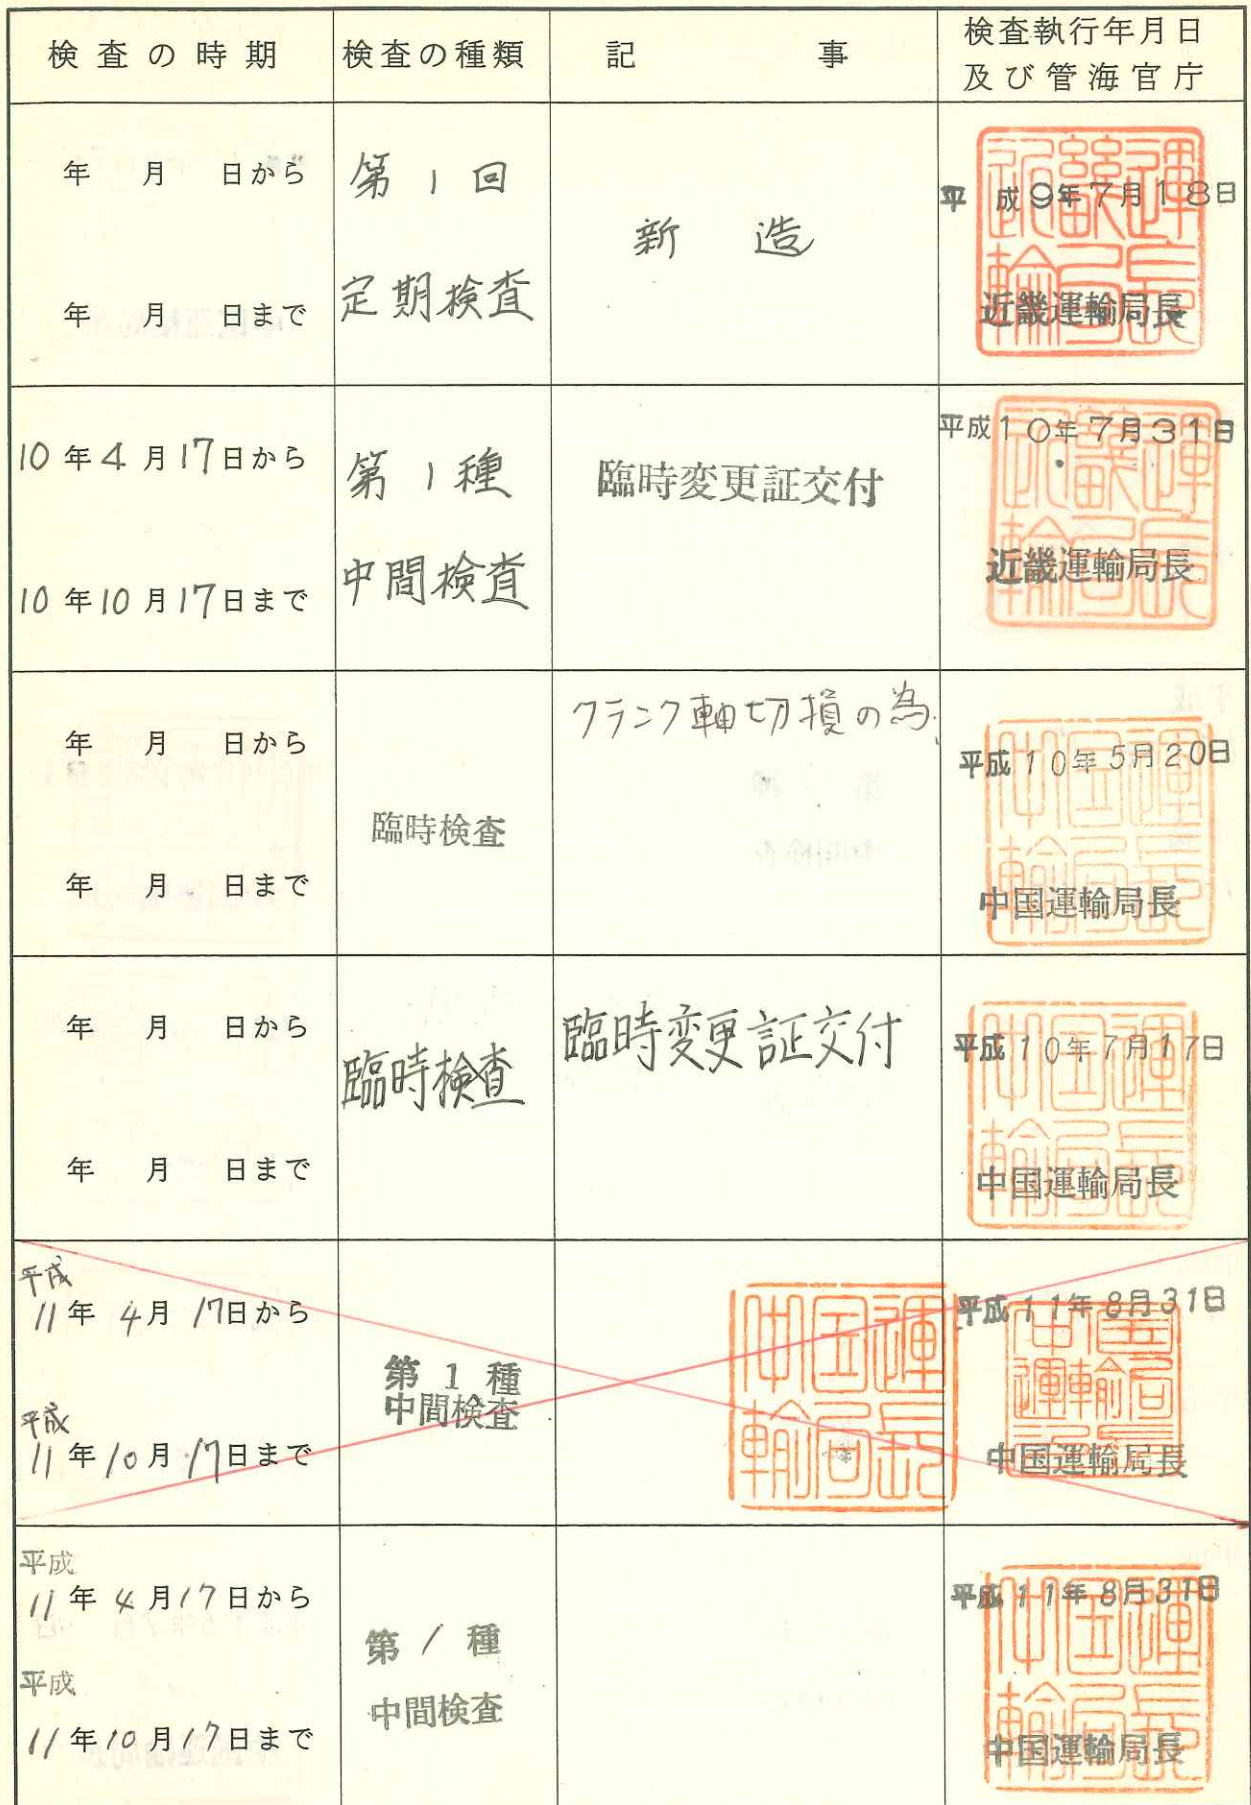 検査の時期
検査の種類
記 事
検査執行年月日
及び管海官庁
年 月 日から
年 月 日まで
第1回
定期検査
新 造
平 成9年7月18日
近畿運輸局長
10年4月17日から
10年10月17日まで
第1種
中間検査
臨時変更証交付
平成10年7月31日
近畿運輸局長
年 月 日から
年 月 日まで
臨時検査
クランク軸切損の為
平成10年5月20日
中国運輸局長
年 月 日から
年 月 日まで
臨時検査
臨時変更証交付
平成10年7月17日
中国運輸局長
平成
11年4月17日から
平成
11年10月17日まで
第1種
中間検査
平成11年8月31日
中国運輸局長
平成
11年4月17日から
平成
11年10月17日まで
第1種
中間検査
平成11年8月31日
中国運輸局長